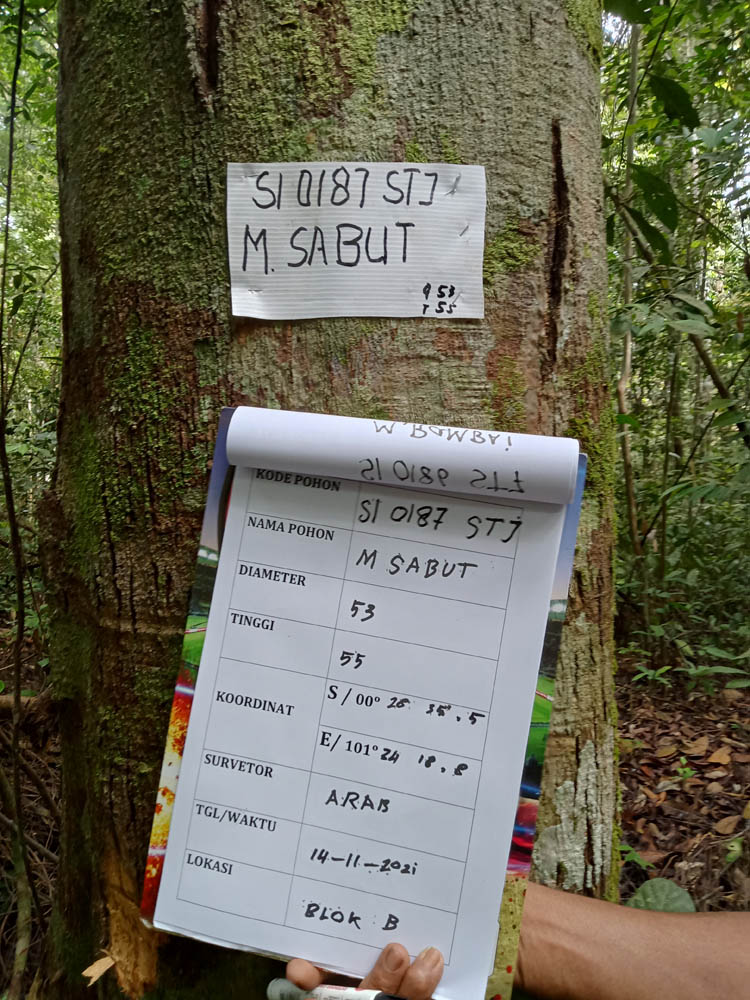 SI 0187 STJ
M. SABUT
Q 53
T 55
KODE POHON SI 0187 STJ
NAMA POHON M SABUT
DIAMETER 53
TINGGI 55
KOORDINAT S / 00° 26 35 . 5
E/ 101° 24 18 . 8
SURVETOR ARAB
TGL/WAKTU 14-11-2021
LOKASI BLOK B